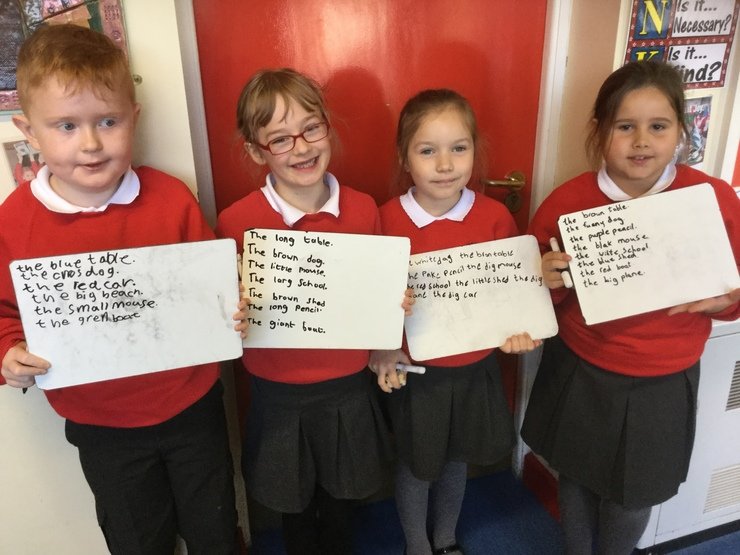 the blue table.
the cros dog.
the red car.
the big beach.
the small mouse.
the gren boat
The long table.
The brown dog.
The little mouse.
The long school.
The brown shed
The long pencil.
The giant boat.
whitedog the blun table
the Pake Pencil the dig mouse
the red school the little shed the dig
the dig car
the brown table.
the funny dog
the puple pencil.
the blak mouse.
the wite school
the blue shed
the red boat
the big plane.
N
Is it...
Necessary?
K
Is it...
Kind?